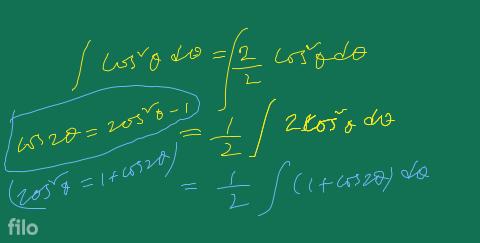 ∫ cos²θ dθ = ∫ 2/2 cos²θ dθ
cos2θ = 2cos²θ - 1
= 1/2 ∫ 2cos²θ dθ
(2cos²θ = 1 + cos2θ)
= 1/2 ∫ (1 + cos2θ) dθ
filo